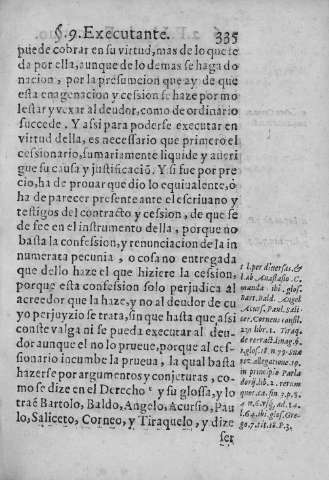 §. 9. Executante. 335
puede cobrar en su virtud, mas de lo que se
da por ella, aunque de lo demas se haga do
nacion, por la presumcion que ay de que
esta enagenacion y cession se haze por mo
lestar y vexar al deudor, como de ordinario
succede. Y assi para poderse executar en
virtud della, es necessario que primero el
cessionario, sumariamente liquide y aueri
gue su causa y justificaciō. Y si fue por pre
cio, ha de prouar que dio lo equiualente, ò
ha de parecer presente ante el escriuano y
testigos del contracto y cession, de que se
de fee en el instrumento della, porque no
basta la confession, y renunciacion de la in
numerata pecunia, o cosa no entregada
que dello haze el que hiziere la cession,
porque esta confession solo perjudica al
acreedor que la haze, y no al deudor de cu
yo perjuyzio se trata, sin que hasta que assi
conste valga ni se pueda executar al deu-
dor aunque el no lo prueue, porque al ces-
sionario incumbe la prueua, la qual basta
hazerse por argumentos y conjeturas, co-
mo se dize en el Derecho t y su glossa, y lo
traē Bartolo, Baldo, Angelo, Acursio, Pau
lo, Saliceto, Corneo, y Tiraquelo, y dize
ser
t l. per diuersas, &
l. ab Anastasio C.
manda. ibi glos.
Bart. Bald. Angel
Acurs. Paul. Sali
cet. Corneus consil.
231. libr. 1. Tiraq.
de retract. linag. §.
1. glos. 18. n. 79. Sua
rez allegatione 19.
in principio Parla
dorij. lib. 2. rerum
quot. ca. fin. 3. p. §.
l. 64. ibi glos. Gre-
go. 7. tit. 18. P. 3.